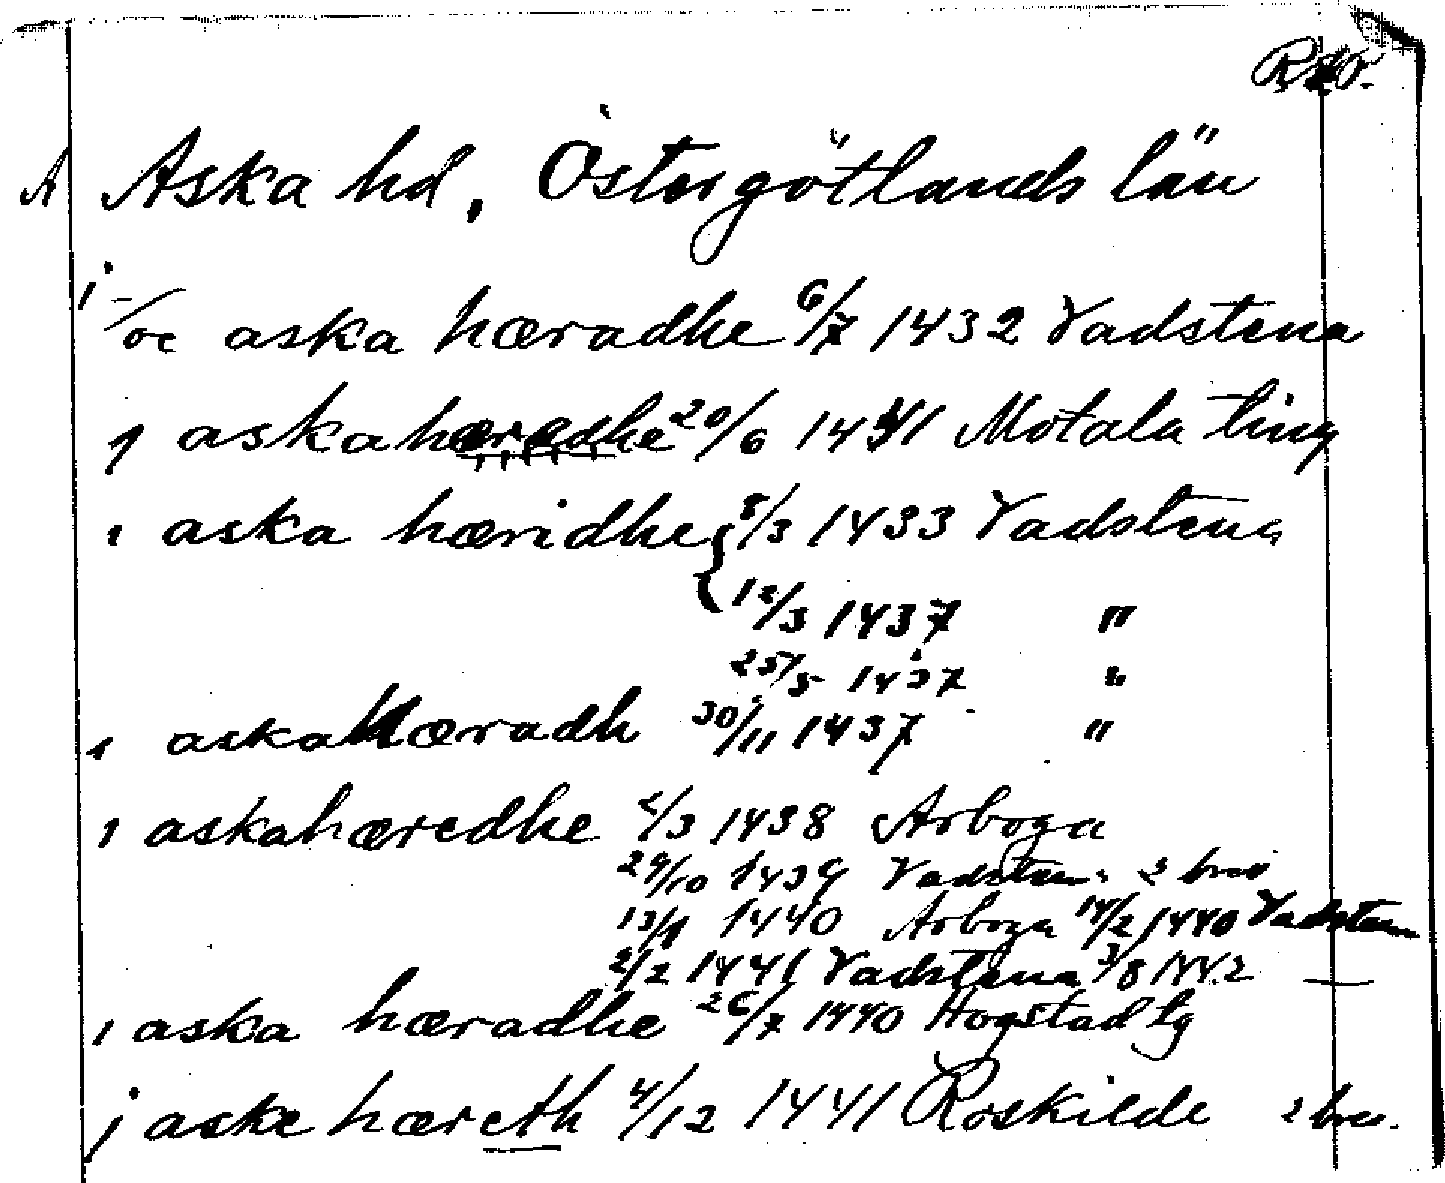 A Aska hd, Östergötlands län
i - / oc aska hæradhe 6/7 1432 Vadstena
j aska hæredhe 20/6 1441 Motala ting
i aska hæridhe { 8/3 1433 Vadstena
12/3 1437 "
25/5 1437 "
i aska hæradh 30/11 1437 "
i askahæredhe 2/3 1438 Arboga
29/10 1439 Vadstena 2 brev
13/1 1440 Arboga 14/2 1440 Vadstena
2/2 1441 Vadstena 3/8 1442 —
i aska hæradhe 26/7 1440 Hogstad tg
j aske hæreth 4/12 1441 Roskilde 2 brev.